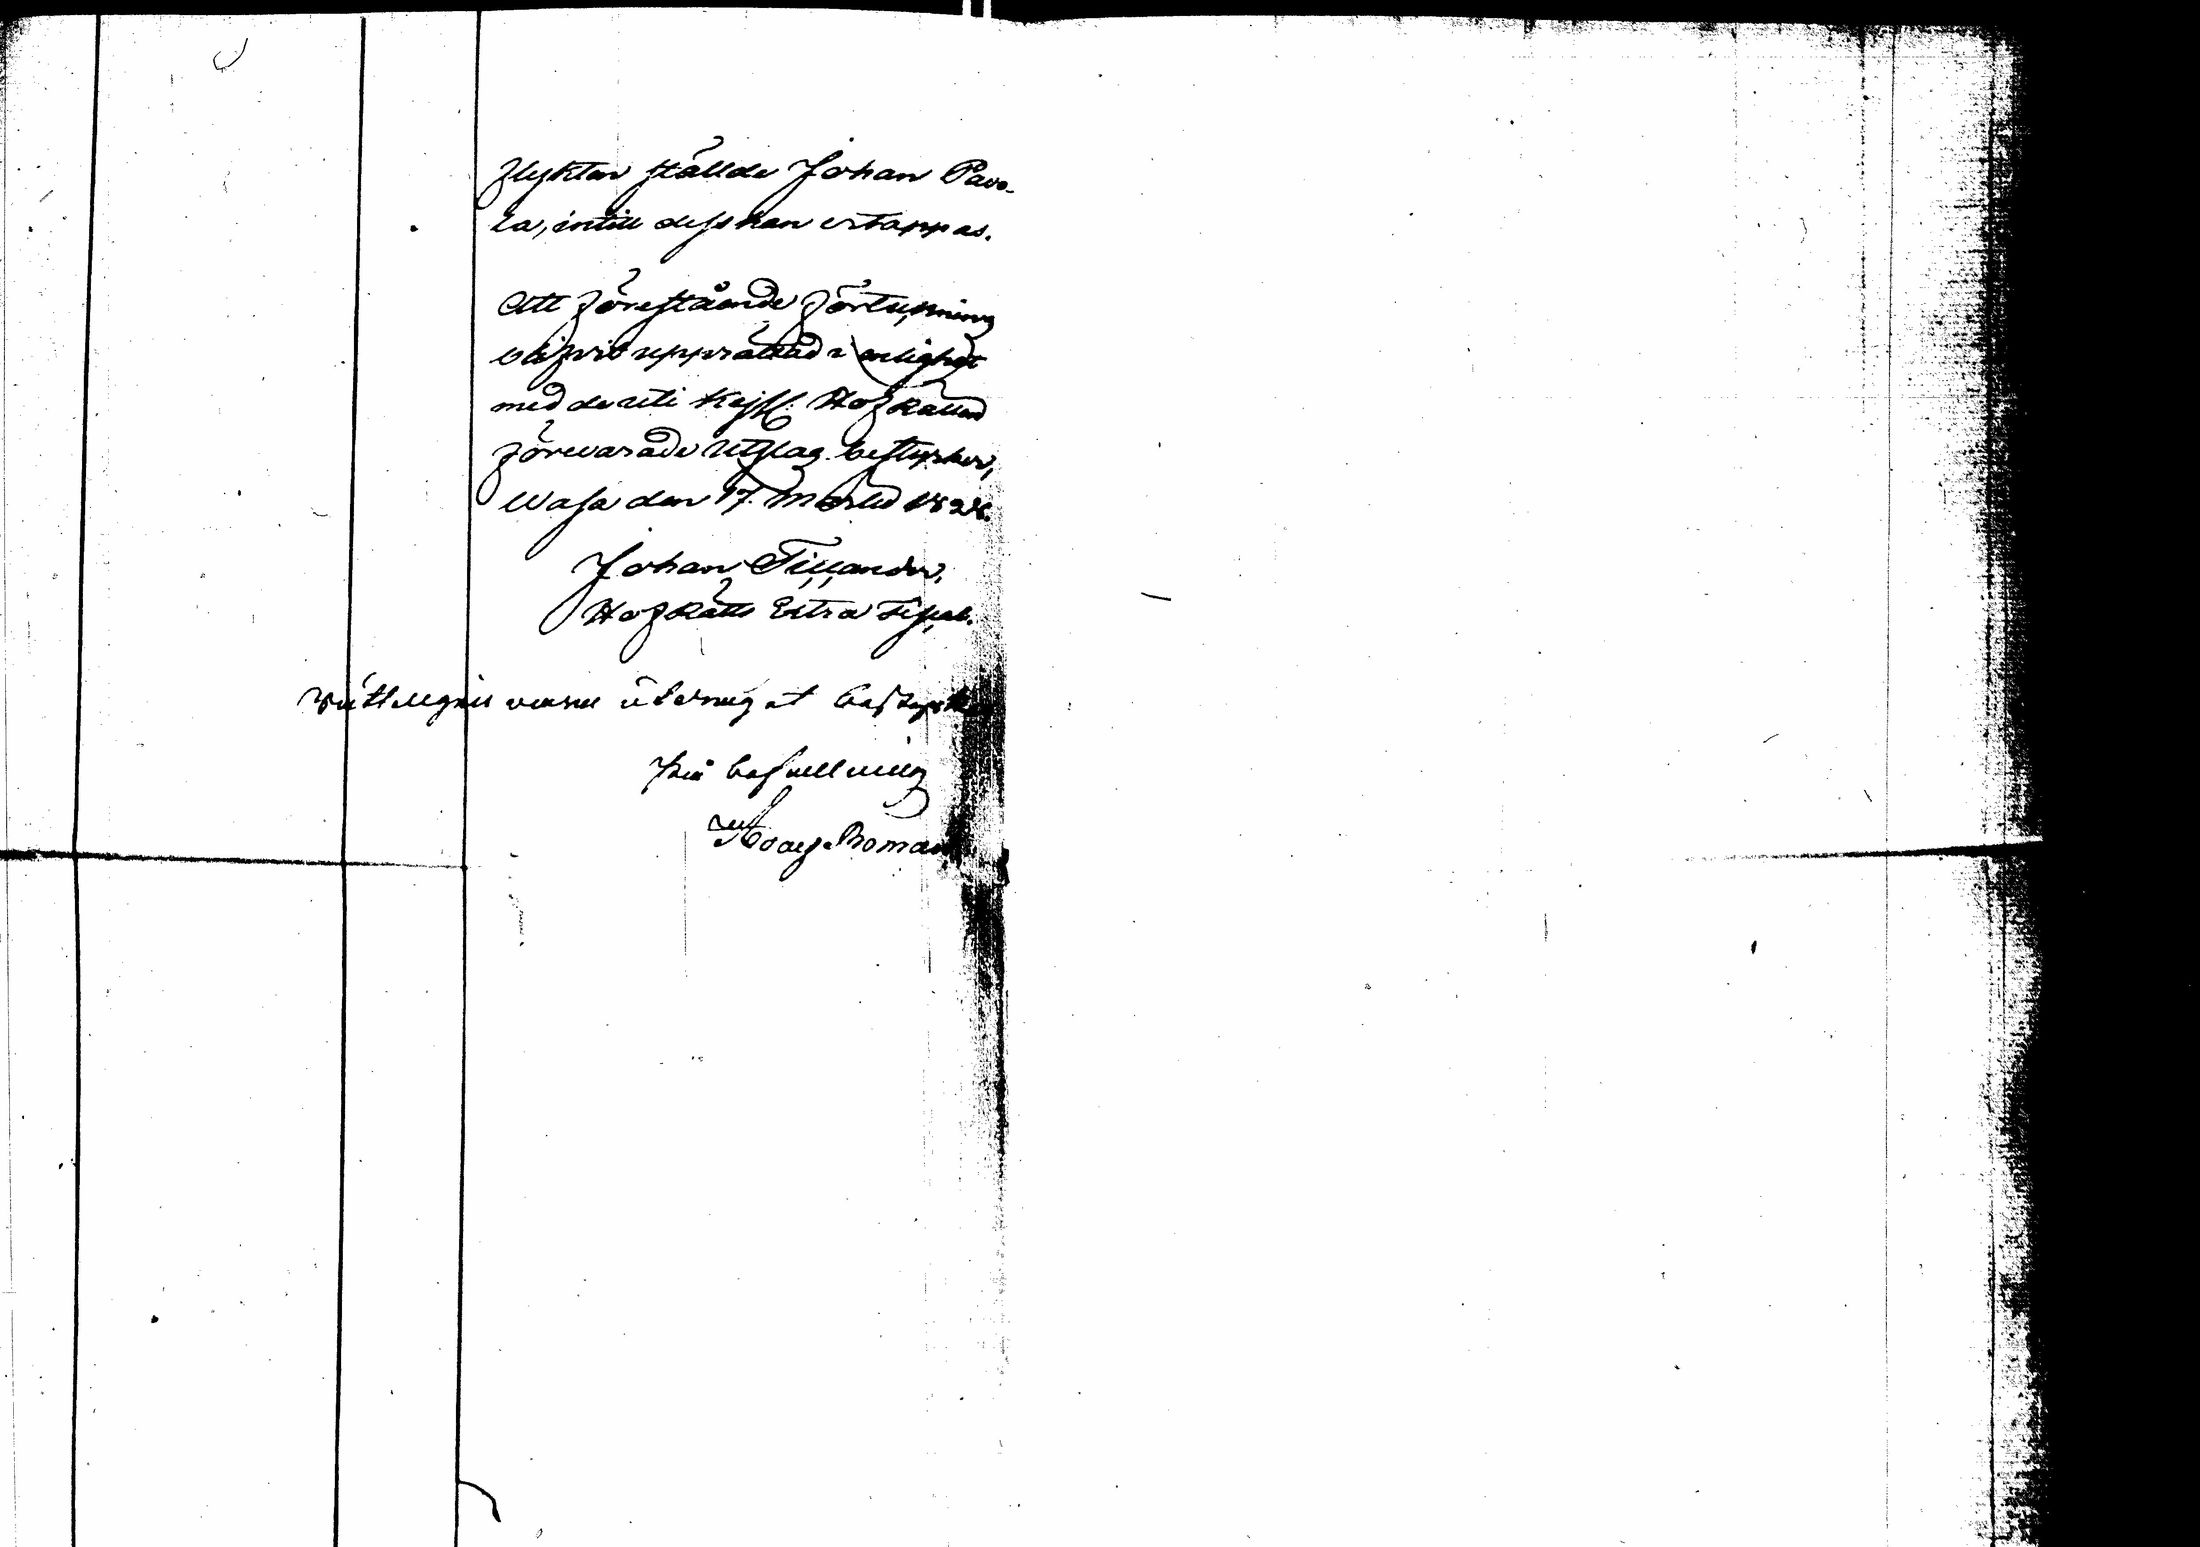 flyktan ställde Johan Pavo-
la, intill dess han ertappas.
Att förestående förtekning
blifvit upprättad i enlighet
med de uti Kejsl. HofRätten
förevarade Utslag bestyrker,
Wasa den 17. Martii 1828.
Johan Tillander,
HofRätts Extra Fiskal.
Rättelegen vara internget bestyrker
På befallning
Boman